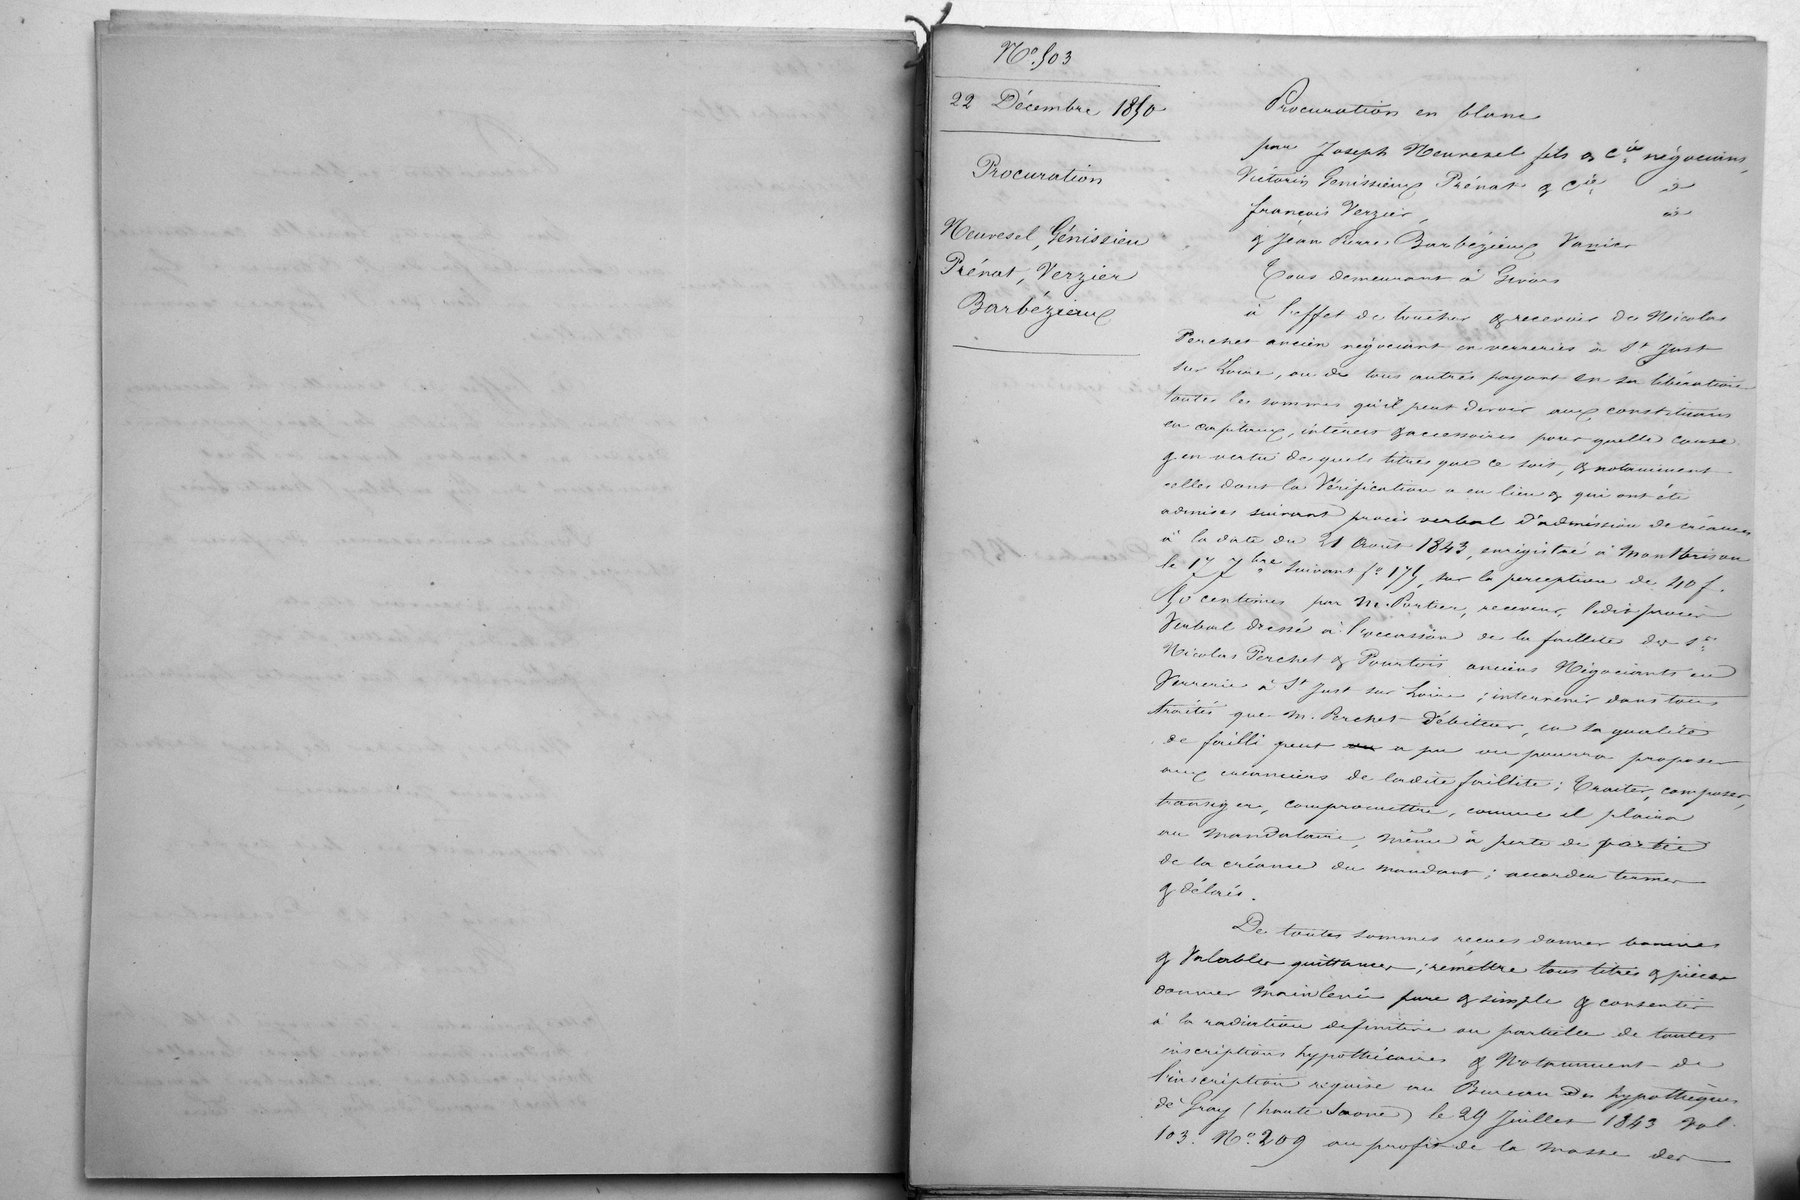 N° 503
22 Décembre 1850
Procuration
Neuvesel, Génissieu
Prénat, Verzier
Barbézieux
Procuration en blanc
par Joseph Neuvesel fils & Cie négocians,
Victorin Genissieux Prénat & Cie id
françois Verzier, id
& Jean Pierre Barbézieux Vanier
Tous demeurant à Givors
à l'effet de toucher & recevoir de Nicolas
Perchet ancien négociant en verreries à St Just
sur Loire, ou de tous autres payant en sa libération
toutes les sommes qu'il peut devoir aux constituans
en capitaux, intérets & accessoires pour quelle cause
& en vertu de quels titres que ce soit, & notamment
celles dont la Vérification a eu lieu & qui ont été
admises suivant procès verbal d'admission de créances
à la date du 21 Août 1843, enregistré à Montbrison
le 17 7bre suivant f° 175, sur la perception de 40 f.
50 centimes par M. Portier, receveur, ledit procès
Verbal dressé à l'occasion de la faillite des Srs
Nicolas Perchet & Pourtois anciens Négociants en
Verrerie à St Just sur Loire ; intervenir dans tous
traités que M. Perchet débiteur, en sa qualité
de failli peut a pu ou pourra proposer
aux créanciers de ladite faillite ; Traiter, composer,
transiger, compromettre, comme il plaira
au Mandataire, même à perte de partie
de la créance du mandant ; accorder termes
& délais.
De toutes sommes reçues donner bonnes
& Valables quittances ; remettre tous titres & pièces
donner Mainlevée pure & simple & consentir
à la radiation definitive ou partielle de toutes
inscriptions hypothécaires & Notamment de
l'inscription réquise au Bureau des hypothèques
de Gray (haute Saone) le 29 Juillet 1843 Vol.
103. N° 209 au profit de la masse des